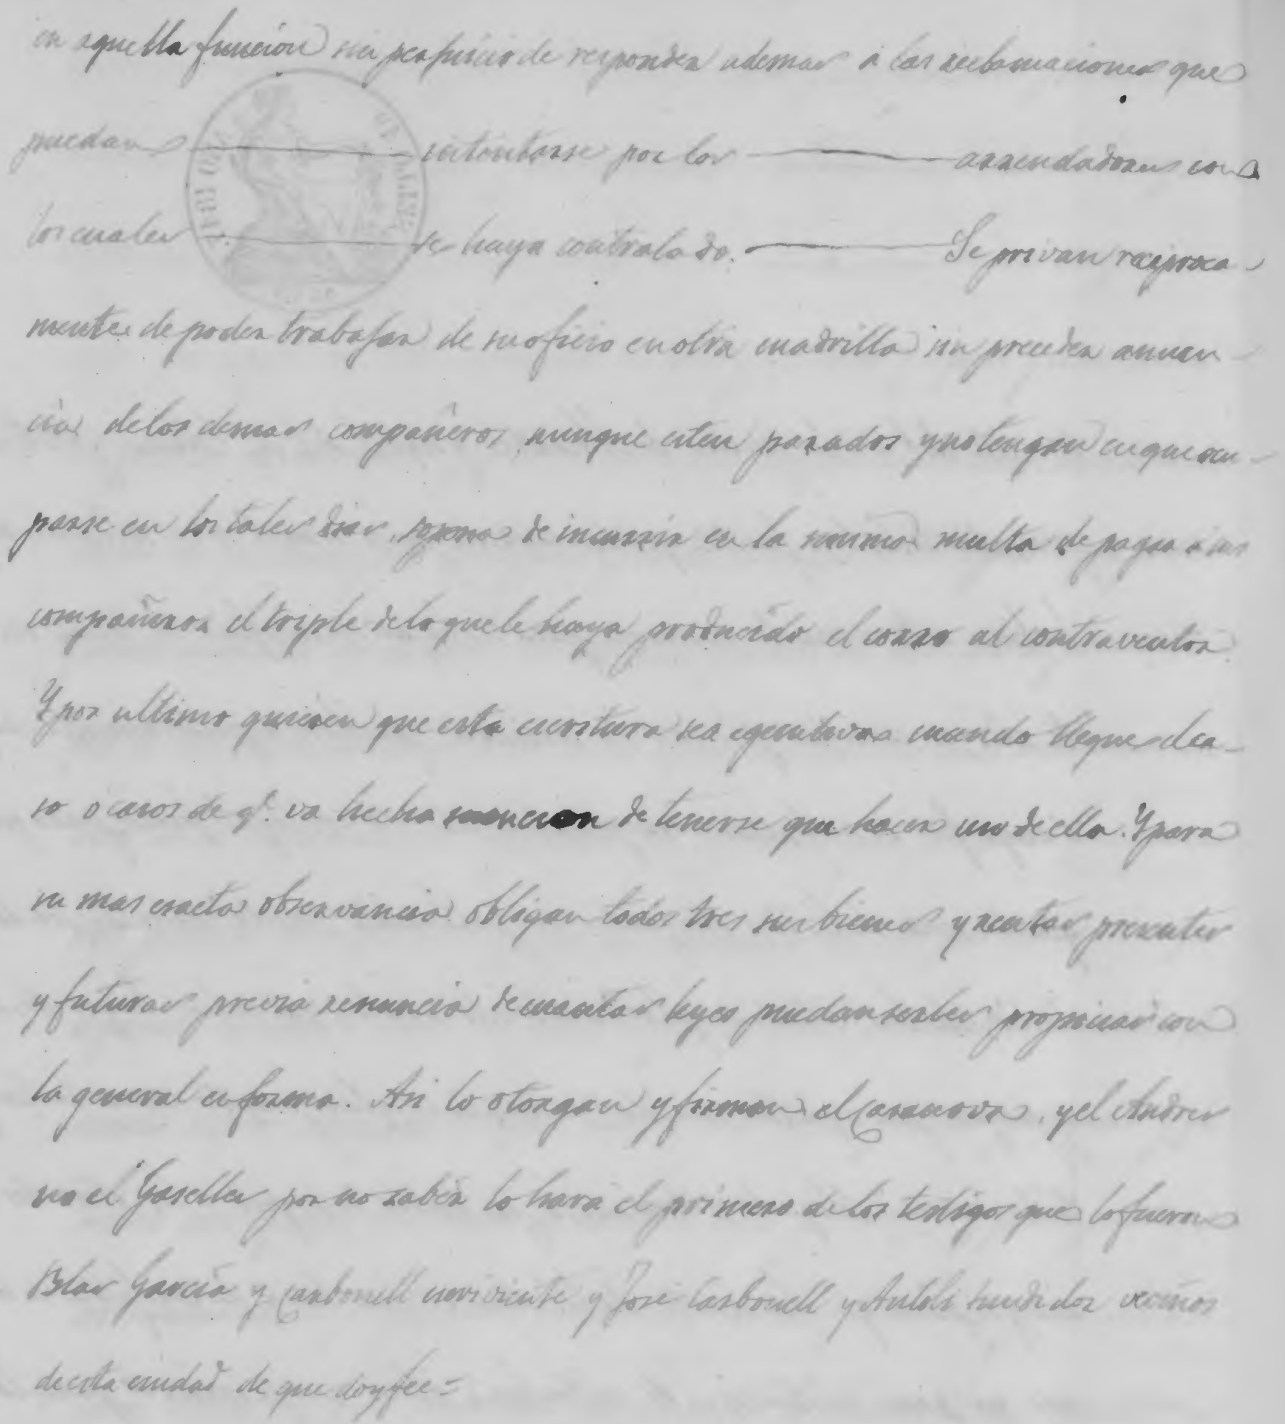 en aquella función sin perjuicio de responder ademas á las reclamaciones que
puedan intentarse por los arrendadores con
los cuales se haya contratado. Se privan reciproca-
mente de poder trabajar de su oficio en otra cuadrilla sin preceder anuen-
cia de los demas compañeros aunque esten parados y no tengan en que ocu-
parse en los tales dias, sopena de incurrir en la misma multa de pagar a sus
compañeros el triple de lo que le haya producido el corro al contraventor
Y por ultimo quieren que esta escritura sea egecutiva cuando llegue el ca-
so o casos de qe. va hecha mencion de tenerse que hacer uso de ella. Y para
su mas exacta observancia obligan todos tres sus bienes y rentas presentes
y futuras previa renuncia de cuantas leyes puedan serles propicias con
la general en forma. Asi lo otorgan y firman el Casanova, y el Andres
no el Gaselles por no saber lo hará el primero de los testigos que lo fueron
Blas García y Carbonell escriviente y José Carbonell y Antoli tundidor vecinos
de esta ciudad de que doy fee=